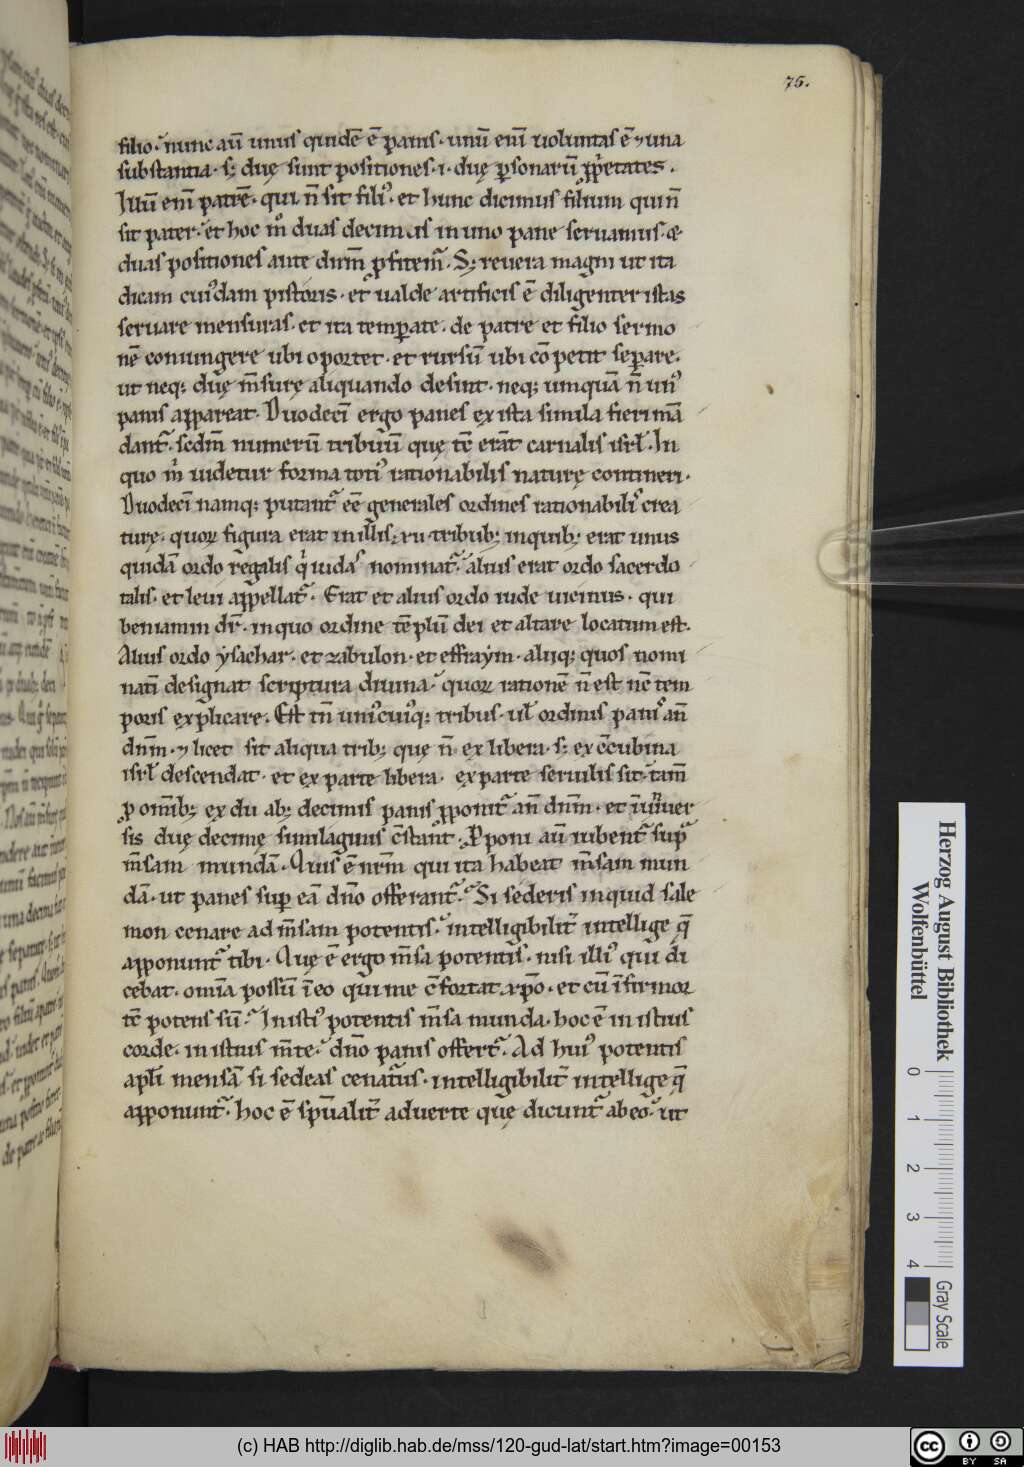 75.
filio· nunc aū unus quidē ē panis· unū enī uoluntas ē ⁊ una
substantia· s; duę sunt positiones· i· duę ꝑsonarū ꝓprietates·
Illū enī patrē· qui n̄ sit fili᾽· et hunc dicimus filium qui n̄
sit pater· et hoc m° duas decimas in uno pane seruamus· &
duas positiones ante dn̄m ꝓfitem̄· S; reuera magni ut ita
dicam cui᾽dam pistoris· et ualde artificis ē diligenter istas
seruare mensuras· et ita temꝑate· de patre et filio sermo
nē coniungere ubi oportet· et rursū ubi cōpetit seꝑare·
ut neq; duę m̄surę aliquando desint· neq; umquā n̄ un᾽
panis appareat· Duodecī ergo panes ex ista simila fieri mā
dant᷑· scdm̄ numerū tribuū quę tc̄ erāt carnalis isrl̄· In
quo m̍ uidetur forma toti᾽ rationabilis naturę contineri·
Duodecī namq; putant᷑ eē generales ordines rationabilis crea
turę· quoꝝ figura erat in illis· xii· tribub; in quib; erat unus
quidā ordo regalis q̍ iudas nominat᷑· alius erat ordo sacerdo
talis· et leui appellat᷑· Erat et alius ordo iude uicinus· qui
beniamin dr̄· in quo ordine tēplū dei et altare locatum est·
Alius ordo ẏsachar· et zabulon· et effraẏm· aliiq; quos nomi
natī designat scriptura diuina· quoꝝ rationē n̄ est nc̄ tem
poris explicare· Est tn̄ uni᾽cui᾽q; tribus· ul̄ ordinis panis an̄
dn̄m· ⁊ licet sit aliqua trib; que n̄ ex libera· s; ex c̄cubina
isrl̄ descendat· et ex parte libera· ex parte seruilis sit· tam̄
ꝓ omīb; ex duab; decimis panis ꝓponit᷑ an̄ dn̄m· et
sis duę decimę similaginis c̄stant· Ꝓponi aū iubent᷑ suꝑ
m̄sam mundā· Quis ē nr̄m qui ita habeat m̄sam mun
dā· ut panes suꝑ eā dn̄o offerant᷑· Si sederis inquid sale
mon cenare ad m̄sam potentis· intelligibilit᷑ intellige q̄
apponunt᷑ tibi· Quę ē ergo m̄sa potentis· nisi illi᾽ qui di
cebat· omīa possū ī eo qui me c̄fortat xpō· et cū īfirmor
tc̄ potens sū· In isti᾽ potentis m̄sa munda· hoc ē in istius
corde· in istius m̄te· dn̄o panis offert᷑· Ad hui᾽ potentis
aplī mensā si sedeas cenaturus· intelligibilit᷑ intellige q̄
apponunt᷑· hoc ē spūalit᷑ aduerte quę dicunt᷑ ab eo· ut
Herzog August Bibliothek
Wolfenbüttel
0 1 2 3 4
Gray Scale
(c) HAB http://diglib.hab.de/mss/120-gud-lat/start.htm?image=00153
cc BY SA